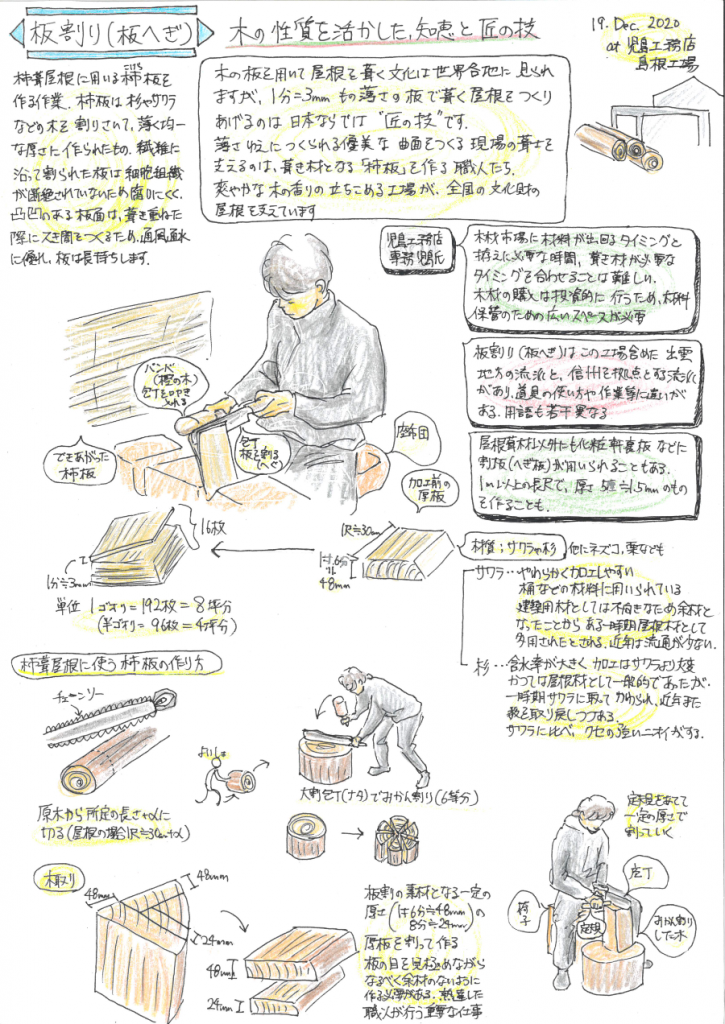 板割り(板へぎ)
木の性質を活かした,知恵と匠の技
19. Dec. 2020
at 児島工務店
島根工場
柿葺屋根に用いる柿板を
こけら
作る作業。柿板は杉やサワラ
などの木を割りさいて、薄く均一
な厚さに作られたもの。繊維に
沿って割られた板は細胞組織
が断絶されていないため腐りにくく、
凸凹のある板面は、葺き重ねた
際にスキ間をつくるため、通風排水
に優れ、板は長持ちします。
木の板を用いて屋根を葺く文化は世界各地に見られ
ますが、1分=3mmもの薄さの板で葺く屋根をつくり
あげるのは日本ならでは"匠の技"です。
薄さゆえにつくられる優美な曲面をつくる現場の葺士を
支えるのは、葺き材となる「柿板」を作る職人たち。
爽やかな木の香りの立ちこめる工場が、全国の文化財の
屋根を支えています
児島工務店
専務 児島氏
木材市場に材料が出回るタイミングと
揃えに必要な時間、葺き材が必要な
タイミングを合わせることは難しい。
木材の購入は投資的に行うため、材料
保管のための広いスペースが必要
板割り(板へぎ)はこの工場含めた出雲
地方の流派と、信州を拠点とする流派
があり、道具の使い方や作業等に違いが
ある。用語も若干異なる
屋根葺材以外にも化粧軒裏板などに
割板(へぎ板)が用いられることもある。
1m以上の長尺で、厚さ5厘≒1.5mmのもの
を作ることも。
バンベ
(樫の木)
包丁を叩き
入れる
包丁
板を割る
(へぐ)
座布団
できあがった
柿板
加工前の
厚板
16枚
1分≒3mm
1尺≒30cm
1寸6分
≒
48mm
単位 1ゴオリ=192枚=8坪分
(半ゴオリ=96枚=4坪分)
材質;サワラや杉 他にネズコ、栗なども
サワラ…やわらかく加工しやすい
桶などの材料に用いられている
建築用木材としては不向きなため余材と
なったことからある一時期屋根木材として
多用されたとされる。近年は流通が少ない。
杉…含水率が大きく加工はサワラより大変
かつては屋根材として一般的であったが、
一時期サワラに取ってかわられ、近年また
数を取り戻しつつある。
サワラに比べ、クセの強いニオイがする。
柿葺屋根に使う柿板の作り方
チェーンソー
よいしょ
原木から所定の長さ+αに
切る(屋根の場合1尺≒30cm+α)
大割包丁(ナタ)でみかん割り(6等分)
定規をあてて
一定の厚さで
割っていく
包丁
椅子
定規
みかん割り
した木
木取り
48mm
48mm
24mm
48mm
24mm
板割の素材となる一定の
厚さ(1寸6分≒48mm)の
8分≒24mm
厚板を割って作る
板の目を見極めながら
なるべく余材のないように
作る必要がある。熟達した
職人が行う重要な仕事